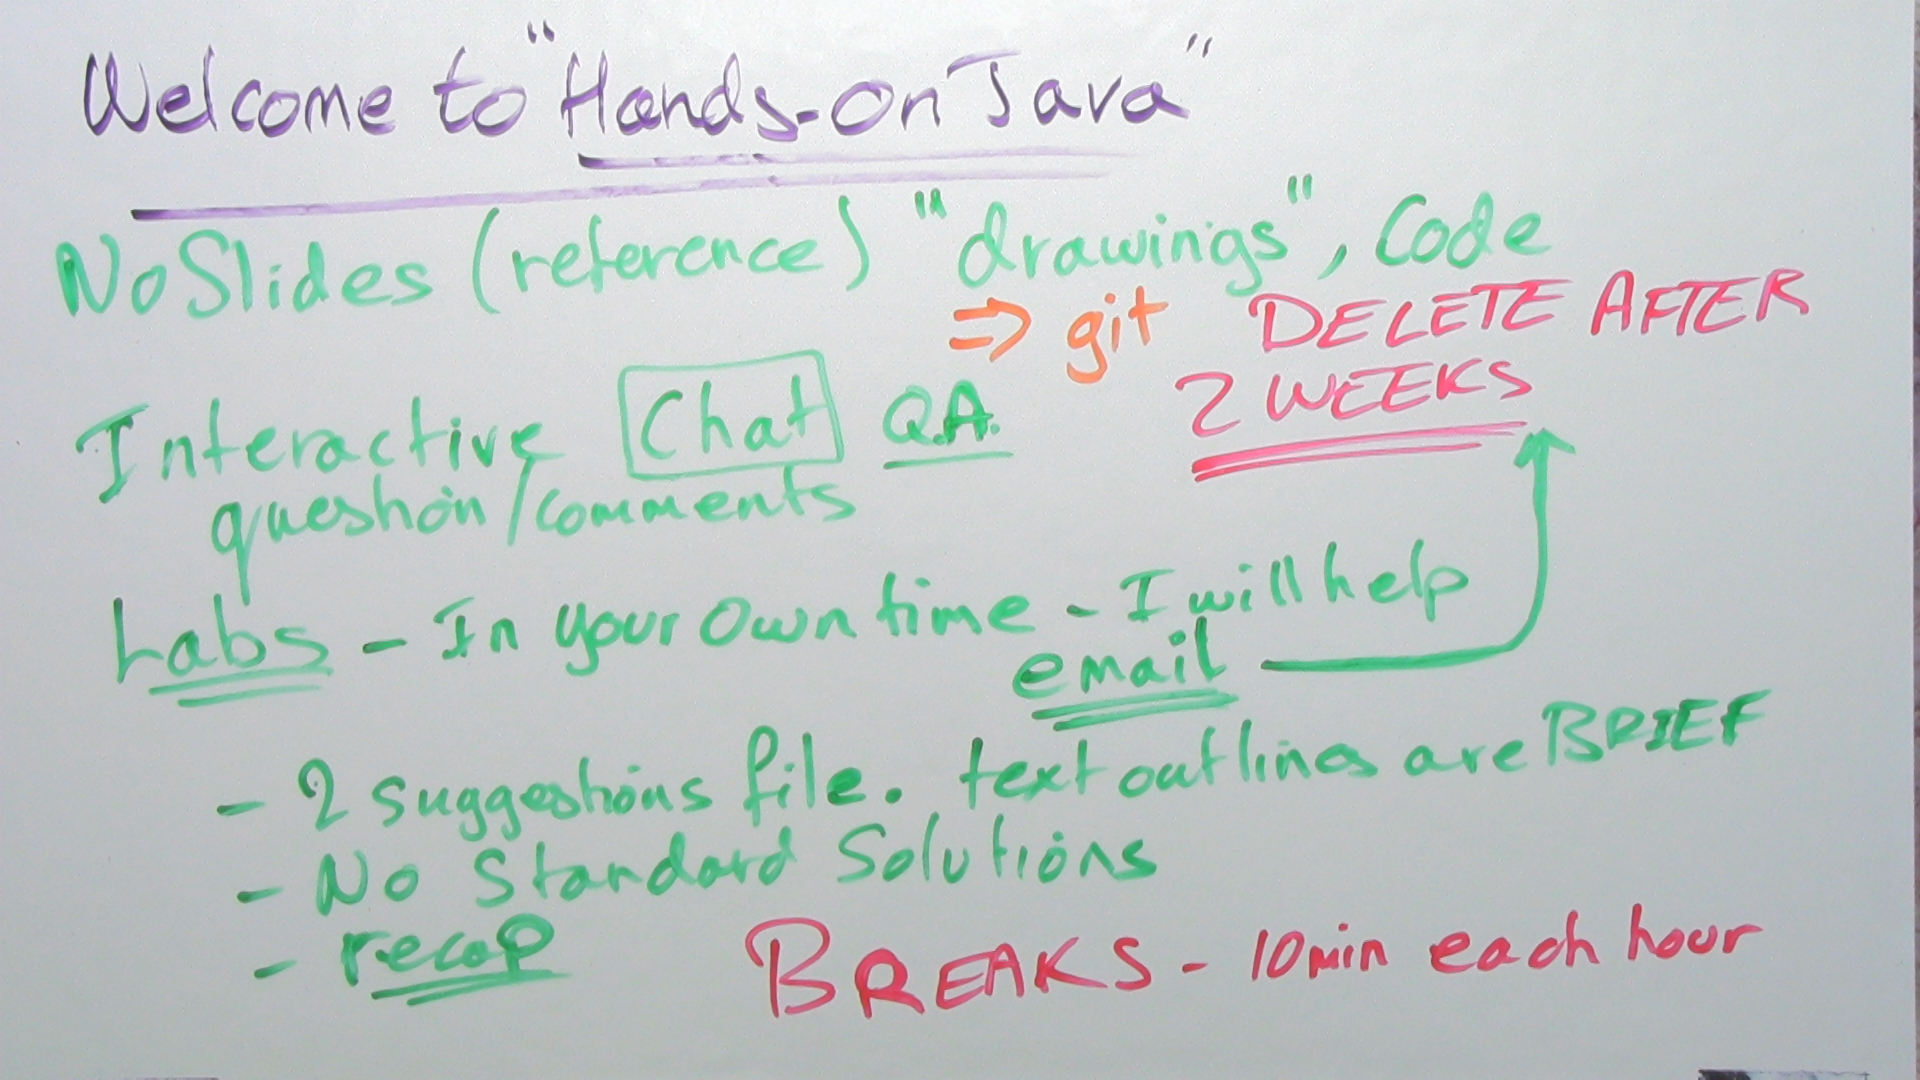 Welcome to "Hands-on Java"
No Slides (reference) "drawings", Code
⇒ git DELETE AFTER
2 WEEKS
Interactive Chat Q.A.
question/comments
Labs - In your own time - I will help
email
- 2 suggestions file. text outlines are BRIEF
- No Standard Solutions
- recap
BREAKS - 10min each hour